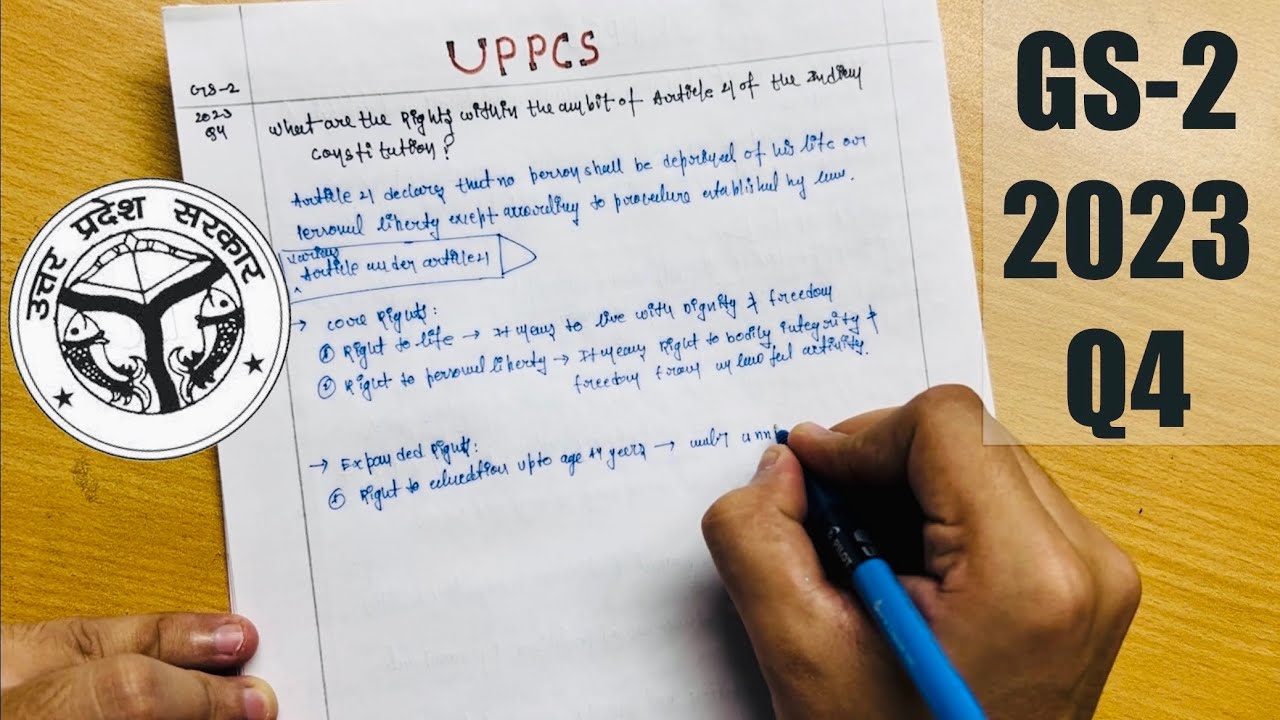 UPPCS
GS-2
2023
Q4
What are the Rights within the ambit of Article 21 of the Indian
constitution?
Article 21 declares that no person shall be deprived of his life or
Personal liberty except according to procedure established by law.
various
Article under article 21
→ Core Rights:
① Right to life → It means to live with Dignity & freedom
② Right to personal liberty → It means Right to bodily integrity &
freedom from unlawful activity.
→ Expanded Rights:
① Right to education upto age 14 years →
उत्तर प्रदेश सरकार
PILOT
GS-2
2023
Q4